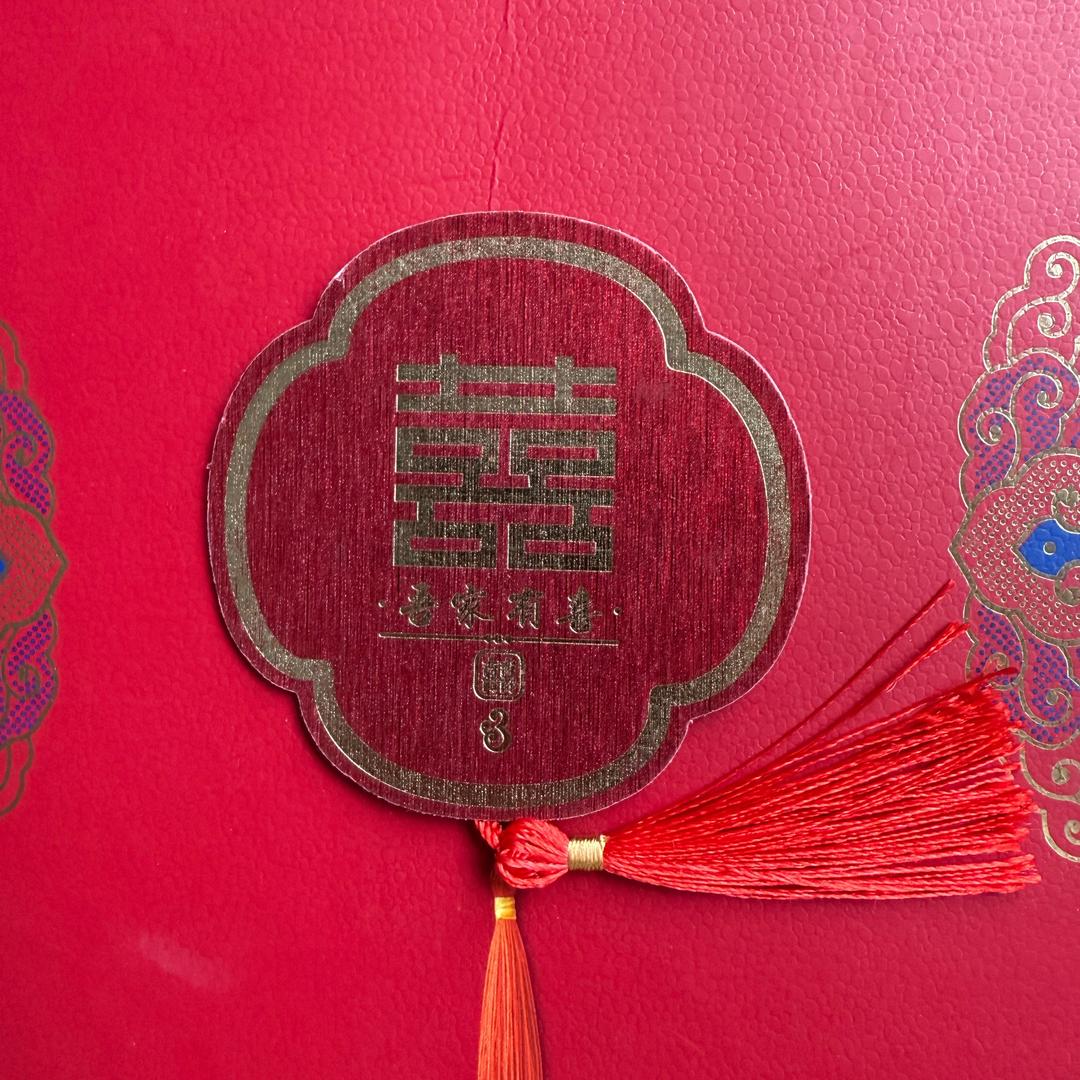 囍
·吾家有喜·
囍